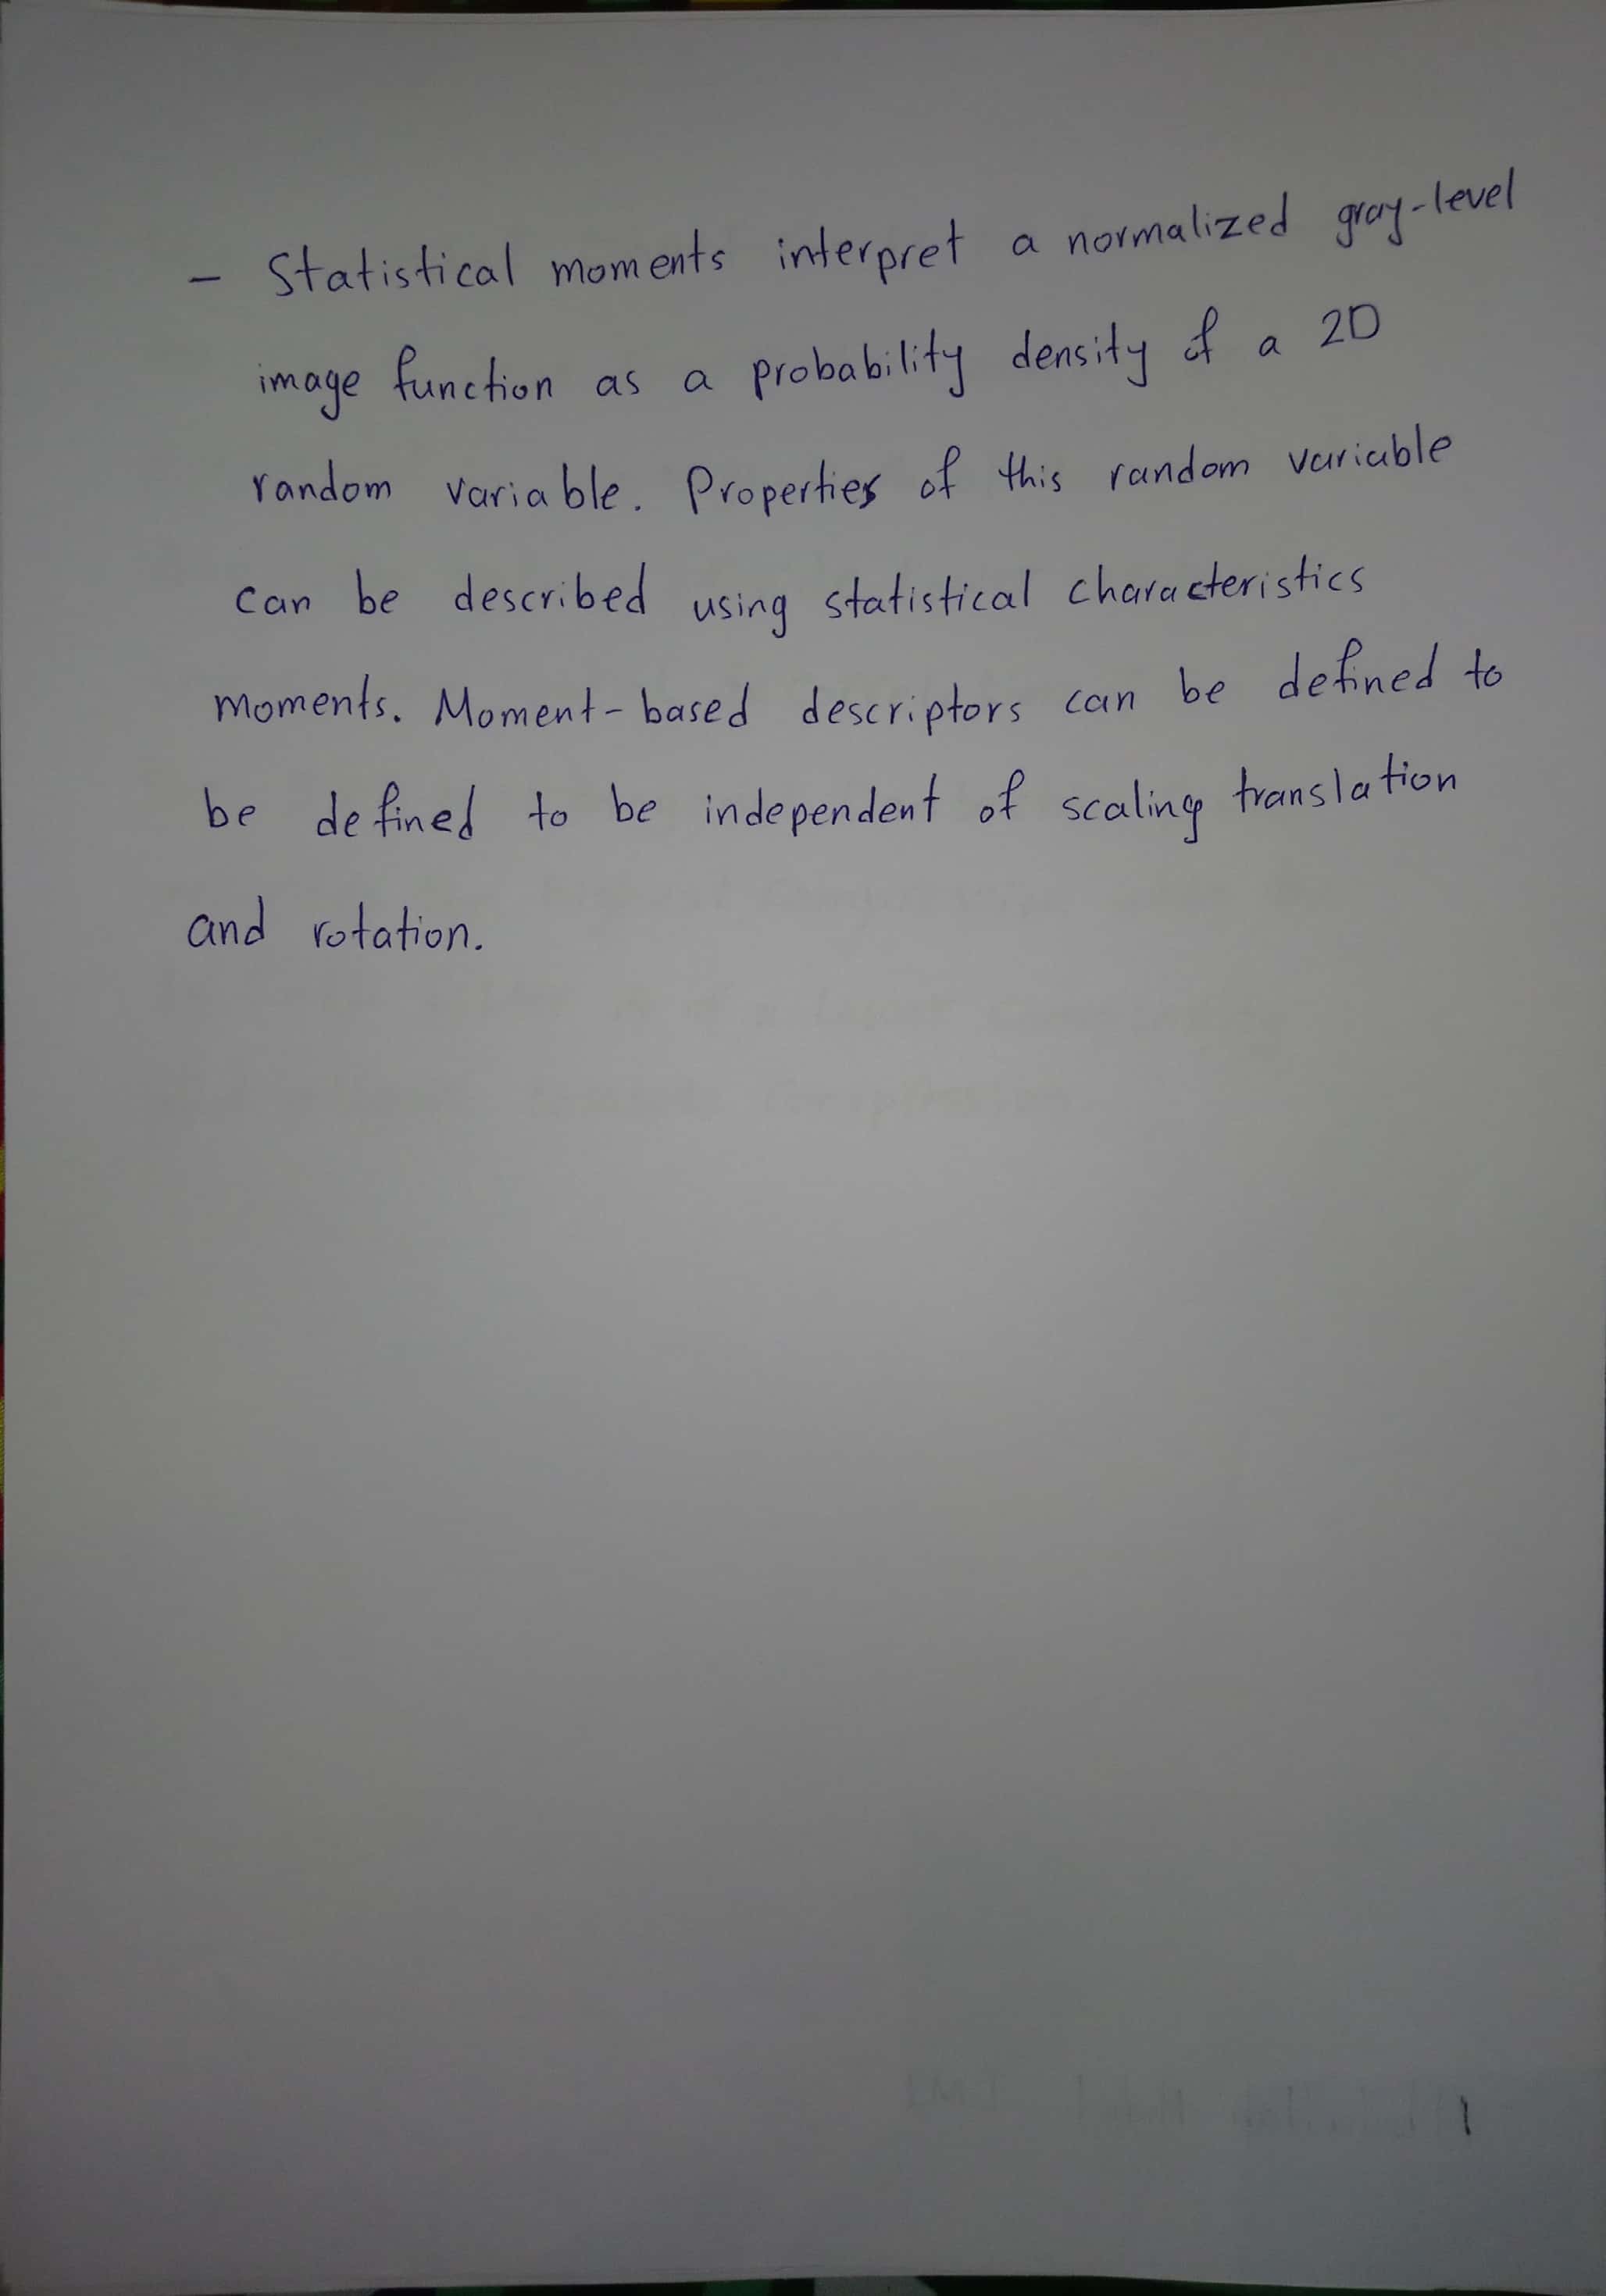 - Statistical moments interpret a normalized gray-level
image function as a probability density of a 2D
random variable. Properties of this random variable
can be described using statistical characteristics
moments. Moment-based descriptors can be defined to
be defined to be independent of scaling translation
and rotation.
1